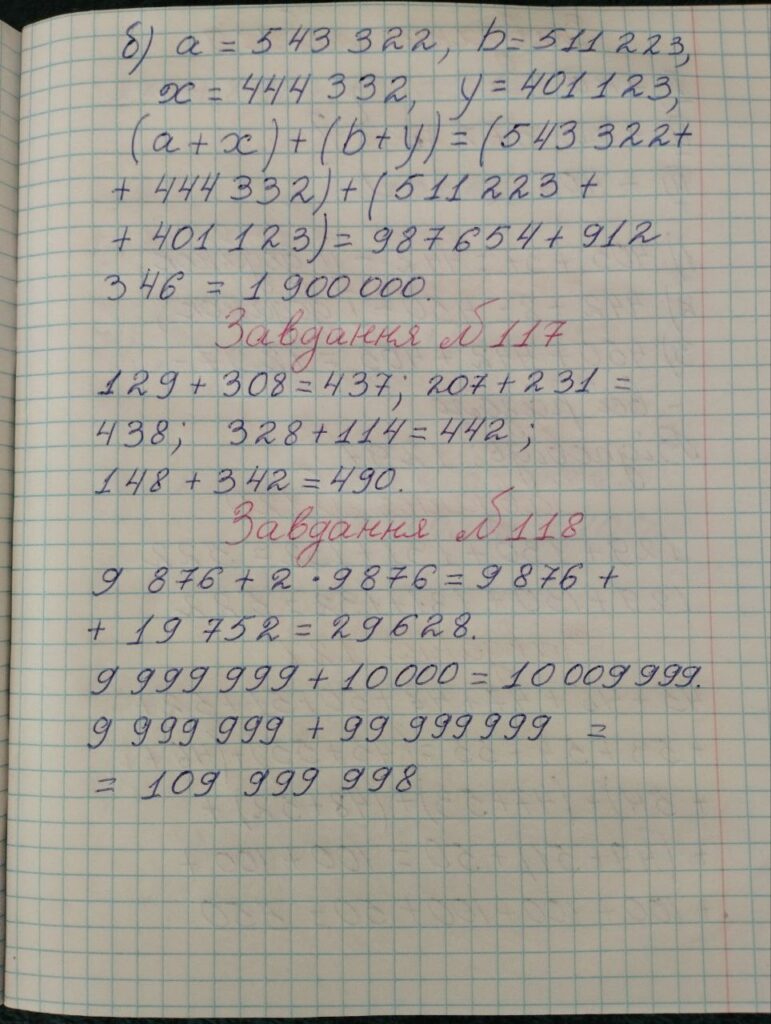 б) a = 543 322, b = 511 223,
x = 444 332, y = 401 123,
(a + x) + (b + y) = (543 322 +
+ 444 332) + (511 223 +
+ 401 123) = 987 654 + 912
346 = 1 900 000.
Завдання №117
129 + 308 = 437; 207 + 231 =
438; 328 + 114 = 442;
148 + 342 = 490.
Завдання №118
9 876 + 2 · 9876 = 9 876 +
+ 19 752 = 29628.
9 999 999 + 10 000 = 10 009 999.
9 999 999 + 99 999 999 =
= 109 999 998